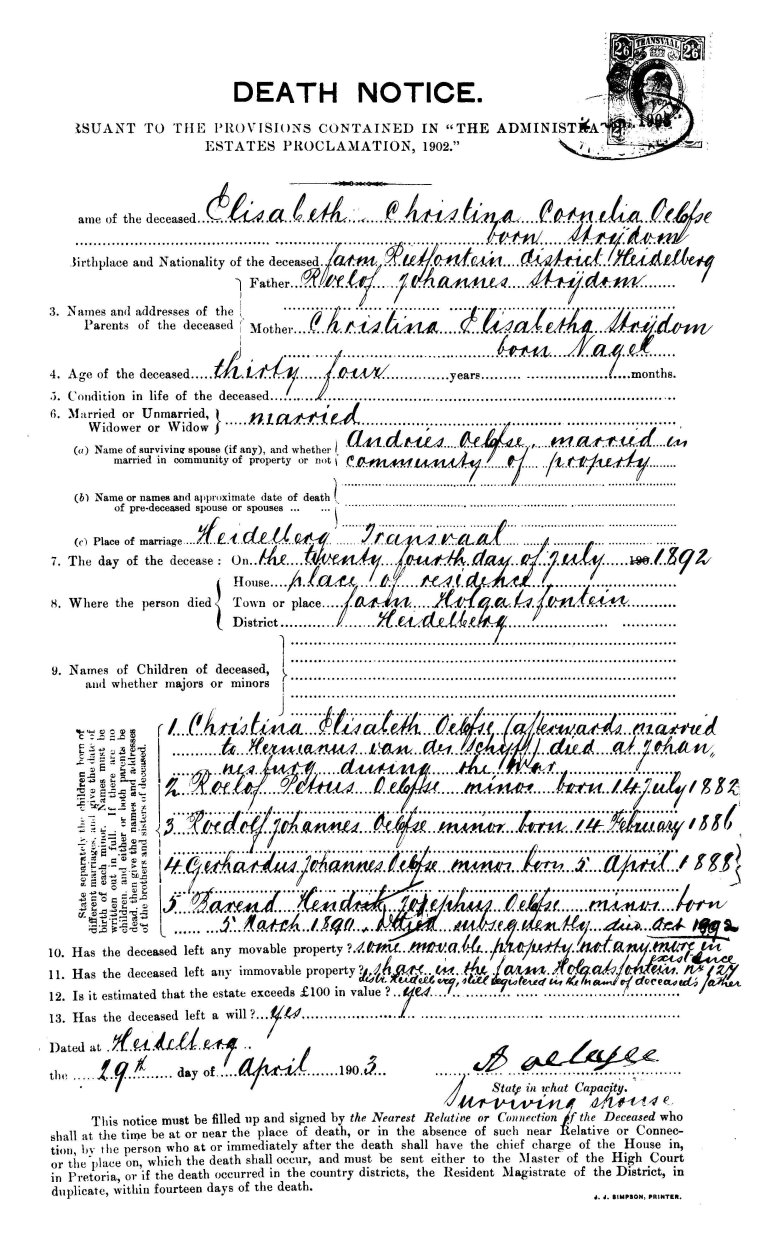 TRANSVAAL
2/6 2/6
DEATH NOTICE.
RSUANT TO THE PROVISIONS CONTAINED IN "THE ADMINISTRA
ESTATES PROCLAMATION, 1902."
ame of the deceased Elisabeth Christina Cornelia Oelofse
born Strijdom
Birthplace and Nationality of the deceased farm Rietfontein district Heidelberg
3. Names and addresses of the Parents of the deceased
Father Roelof Johannes Strijdom
Mother Christina Elisabetha Strijdom
born Nagel
4. Age of the deceased thirty four years months.
5. Condition in life of the deceased
6. Married or Unmarried, Widower or Widow married
(a) Name of surviving spouse (if any), and whether married in community of property or not
Andries Oelofse, married in
community of property
(b) Name or names and approximate date of death of pre-deceased spouse or spouses ... ...
(c) Place of marriage Heidelberg Transvaal
7. The day of the decease: On the twenty fourth day of July 190 1892
8. Where the person died
House place of residence
Town or place farm Holgatsfontein
District Heidelberg
9. Names of Children of deceased,
and whether majors or minors
State separately the children born of
different marriages, and give the date of
birth of each minor. Names must be
written out in full. If there are no
children, and either or both parents be
dead, then give the names and addresses
of the brothers and sisters of deceased.
1 Christina Elisabeth Oelofse (afterwards married
to Hermanus van der Schyff) died at Johan,
nesburg during the war
2 Roelof Petrus Oelofse minor born 14 July 1882
3 Roedolf Johannes Oelofse minor born 14 February 1886
4 Gerhardus Johannes Oelofse minor born 5 April 1888
5 Barend Hendrik Josephus Oelofse minor born
5 March 1890. died subsequently died Oct 1892
10. Has the deceased left any movable property? some movable property not any more in
existence
11. Has the deceased left any immovable property? share in the farm Holgatsfontein nr 127
distr. Heidelberg, still registered in the name of deceased's father
12. Is it estimated that the estate exceeds £100 in value? yes
13. Has the deceased left a will? yes
Dated at Heidelberg
the 29th day of April 1903
A Oelofse
State in what Capacity.
Surviving spouse
This notice must be filled up and signed by the Nearest Relative or Connection of the Deceased who
shall at the time be at or near the place of death, or in the absence of such near Relative or Connec-
tion, by the person who at or immediately after the death shall have the chief charge of the House in,
or the place on, which the death shall occur, and must be sent either to the Master of the High Court
in Pretoria, or if the death occurred in the country districts, the Resident Magistrate of the District, in
duplicate, within fourteen days of the death.
J. J. SIMPSON, PRINTER.